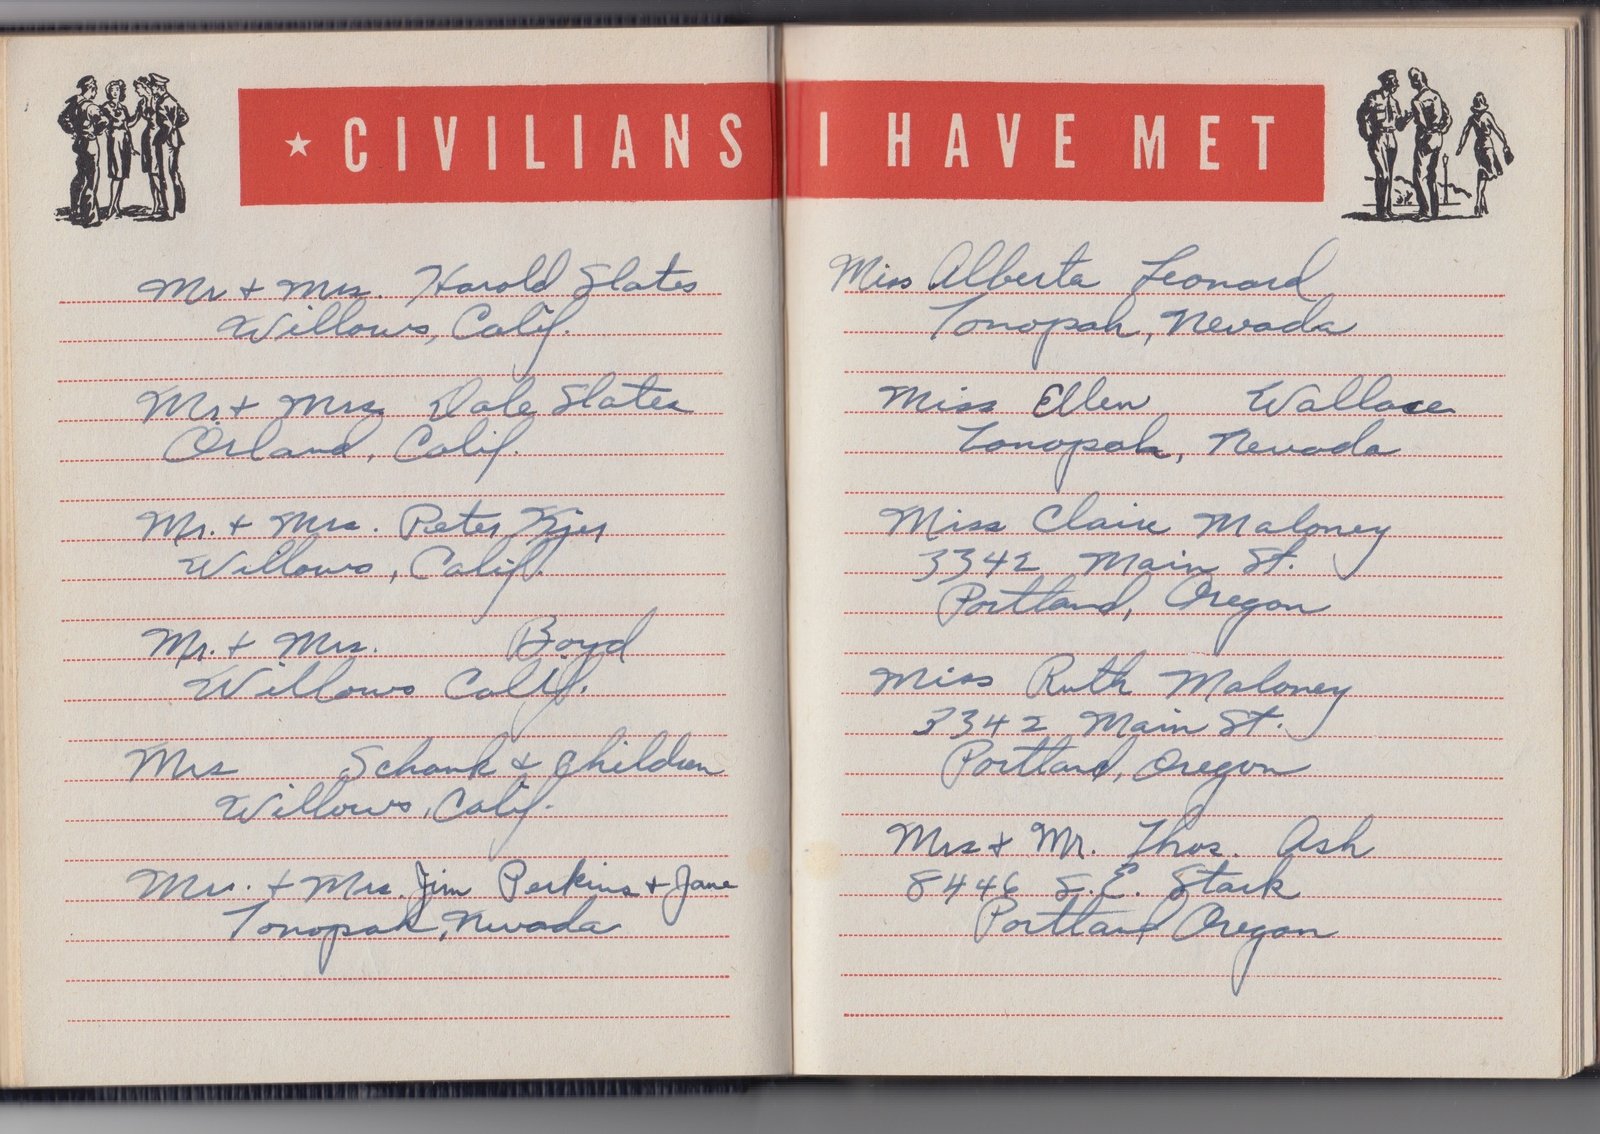 ★ CIVILIANS I HAVE MET
Mr + Mrs. Harold Slates
Willows, Calif.
Mr + Mrs Dale Slates
Orland, Calif.
Mr. + Mrs. Peter Kjer
Willows, Calif.
Mr. + Mrs. Boyd
Willows Calif.
Mrs Schank + Children
Willows, Calif.
Mr. + Mrs. Jim Perkins + Jane
Tonopah, Nevada
Miss Alberta Leonard
Tonopah, Nevada
Miss Ellen Wallace
Tonopah, Nevada
Miss Claire Maloney
3342 Main St.
Portland, Oregon
Miss Ruth Maloney
3342 Main St.
Portland, Oregon
Mrs + Mr. Thos. Ash
8446 S.E. Stark
Portland Oregon